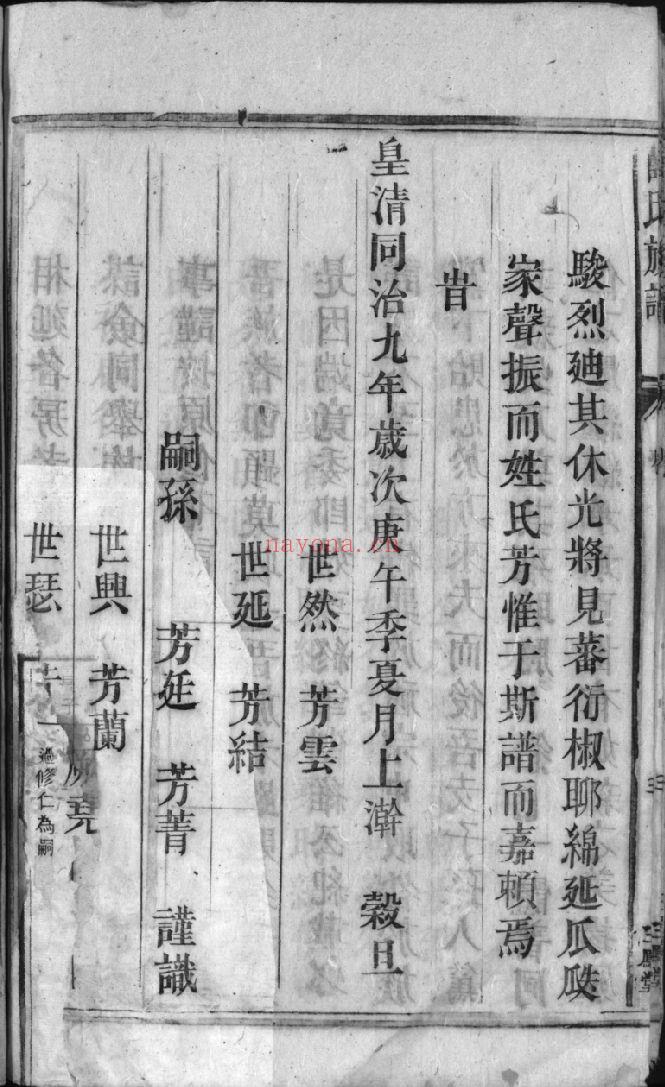 氏族譜
駿烈廸其休光將見蕃衍椒聊綿延瓜瓞
家聲振而姓氏芳惟于斯譜而嘉頼焉
旹
皇清同治九年歲次庚午季夏月上澣 榖旦
世然 芳雲
世延 芳結
嗣孫 芳廷 芳菁 謹識
世興 芳蘭
世瑟
過修仁為嗣
nayona.cn